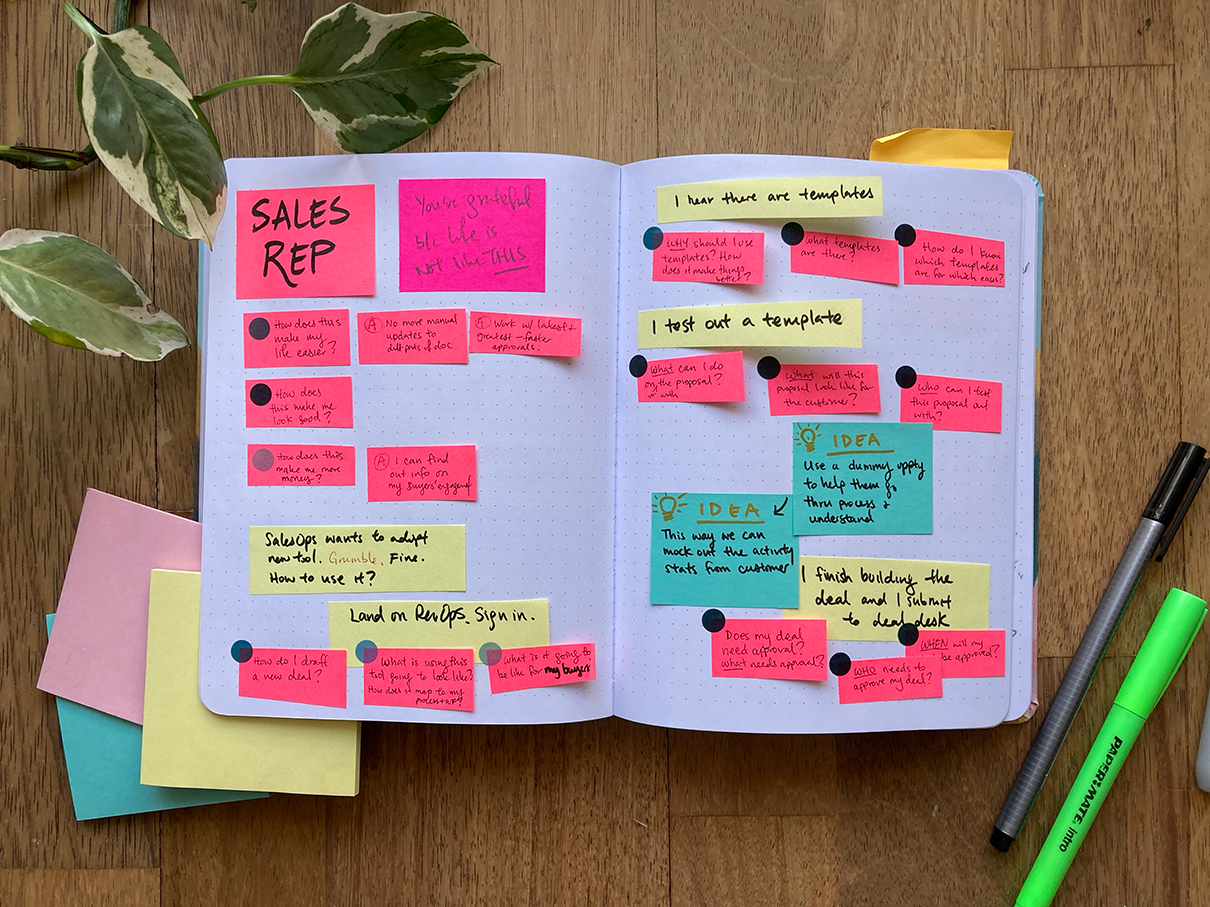 SALES
REP
You're grateful
b/c life is
not like THIS
How does this
make my
life easier?
A No more manual
updates to
diff parts of doc
A Work w/ latest &
greatest – faster
approvals.
How does
this make me
look good?
How does this
make me more
money?
A I can find
out info on
my Buyers' engagement
SalesOps wants to adopt
new tool. Grumble. Fine.
How to use it?
Land on RevOps. Sign in.
How do I draft
a new deal?
What is using this
tool going to look like?
How does it map to my
What is it going to
be like for my buyers
I hear there are templates
WHY should I use
templates? How
does it make things
better?
What templates
are there?
How do I know
which templates
are for which cases?
I test out a template
WHAT can I do
on the proposal?
or with
WHAT will this
proposal look like for
the customer?
WHO can I test
this proposal out
with?
IDEA
Use a dummy oppty
to help them go
thru process &
understand
IDEA
This way we can
mock out the activity
stats from customer
I finish building the
deal and I submit
to deal desk
Does my deal
need approval?
What needs approval?
WHO needs to
approve my deal?
WHEN will my
be approved?
PAPER:MATE intro